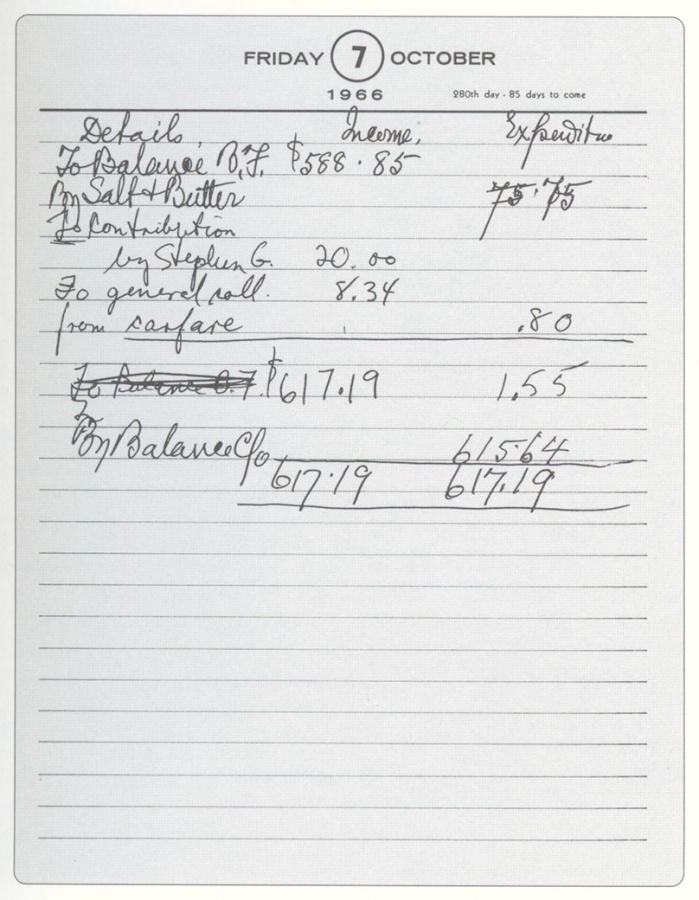 FRIDAY 7 OCTOBER
1966
280th day - 85 days to come
Details Income, Expenditure
To Balance B.F. $588.85
By Salt + Butter 75.75
To Contribution
by Stephen G. 20.00
To general coll. 8.34
from carfare .80
To Balance B.F. $617.19 1.55
By Balance C/o 61564
617.19 617.19